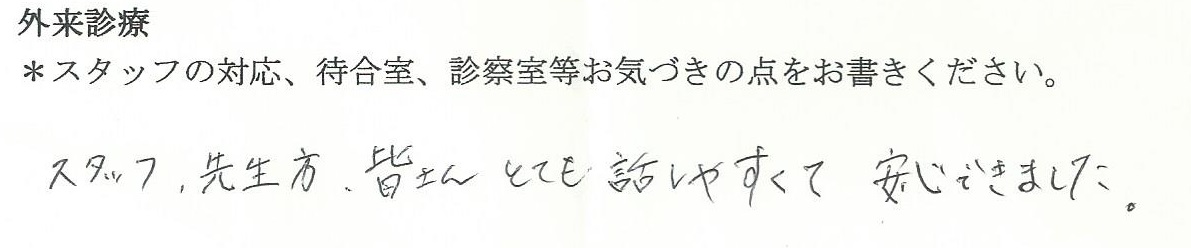 外来診療
＊スタッフの対応、待合室、診察室等お気づきの点をお書きください。
スタッフ、先生方、皆さん とても 話しやすくて 安心できました。